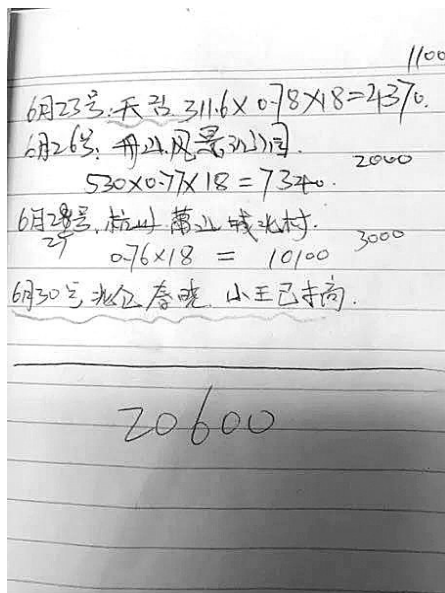 1100
6月23号:天台 311.6×0.78×18=4370.
6月26号:舟山风景公园.
2000
530×0.77×18=7340.
6月28号,杭州萧山城北村.
29
3000
0.76×18 = 10100
6月30号北仑春晓 小王已
20600